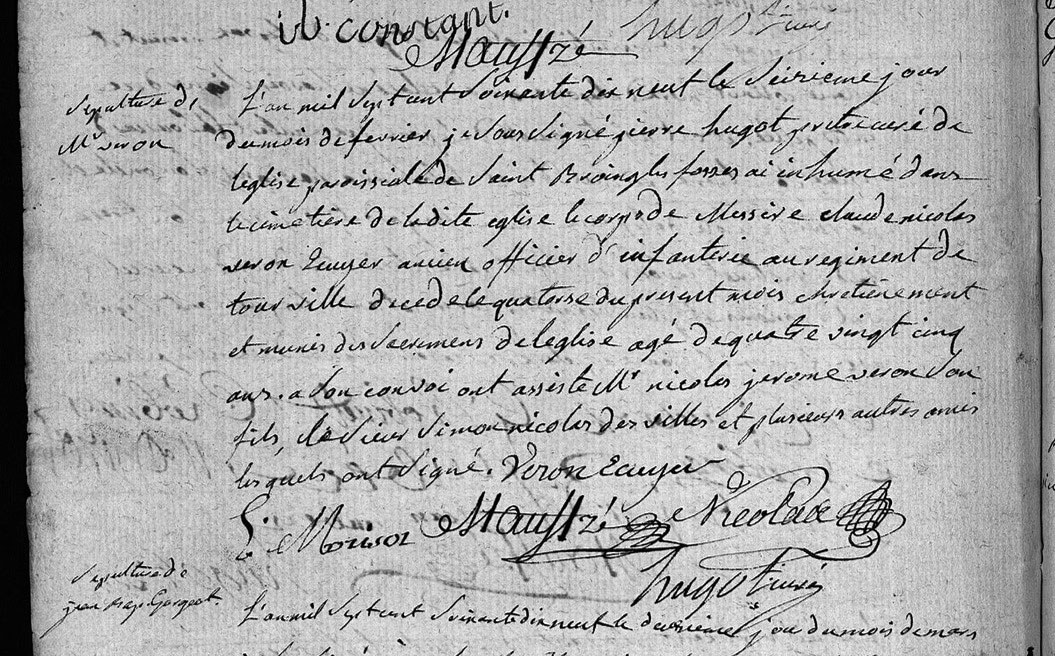 constant.
Mausszé hugot curé
Sepulture de
Mr veron
L'an mil sept cent soixante dix neuf le seizieme jour
du mois de fevrier je soussigné pierre hugot pretre curé de
leglise paroissiale de saint Broingles fosses ai inhumé dans
le cimetiere de ladite eglise le corps de Messire claude nicolas
veron Ecuyer ancien officier d'infanterie au regiment de
tourville decedé le quatorse du present mois chretiennement
et munis des sacremens de leglise agé de quatre vingt cinq
ans. a son convoi ont assisté Mr nicolas jerome veron son
fils, le sieur simon nicolas des villes et plusieurs autres amis
lesquels ont signé. Veron Ecuyer
Mausszé
hugot curé
Sepulture de
jean
L'an mil sept cent soixante dix neuf le jour du mois de mars